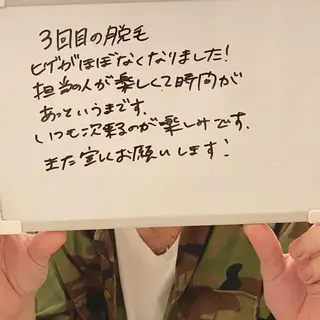 3回目の脱毛
ヒゲがほぼなくなりました!
担当の人が楽しくて時間が
あっというまです。
いつも次来るのが楽しみです。
また宜しくお願いします!